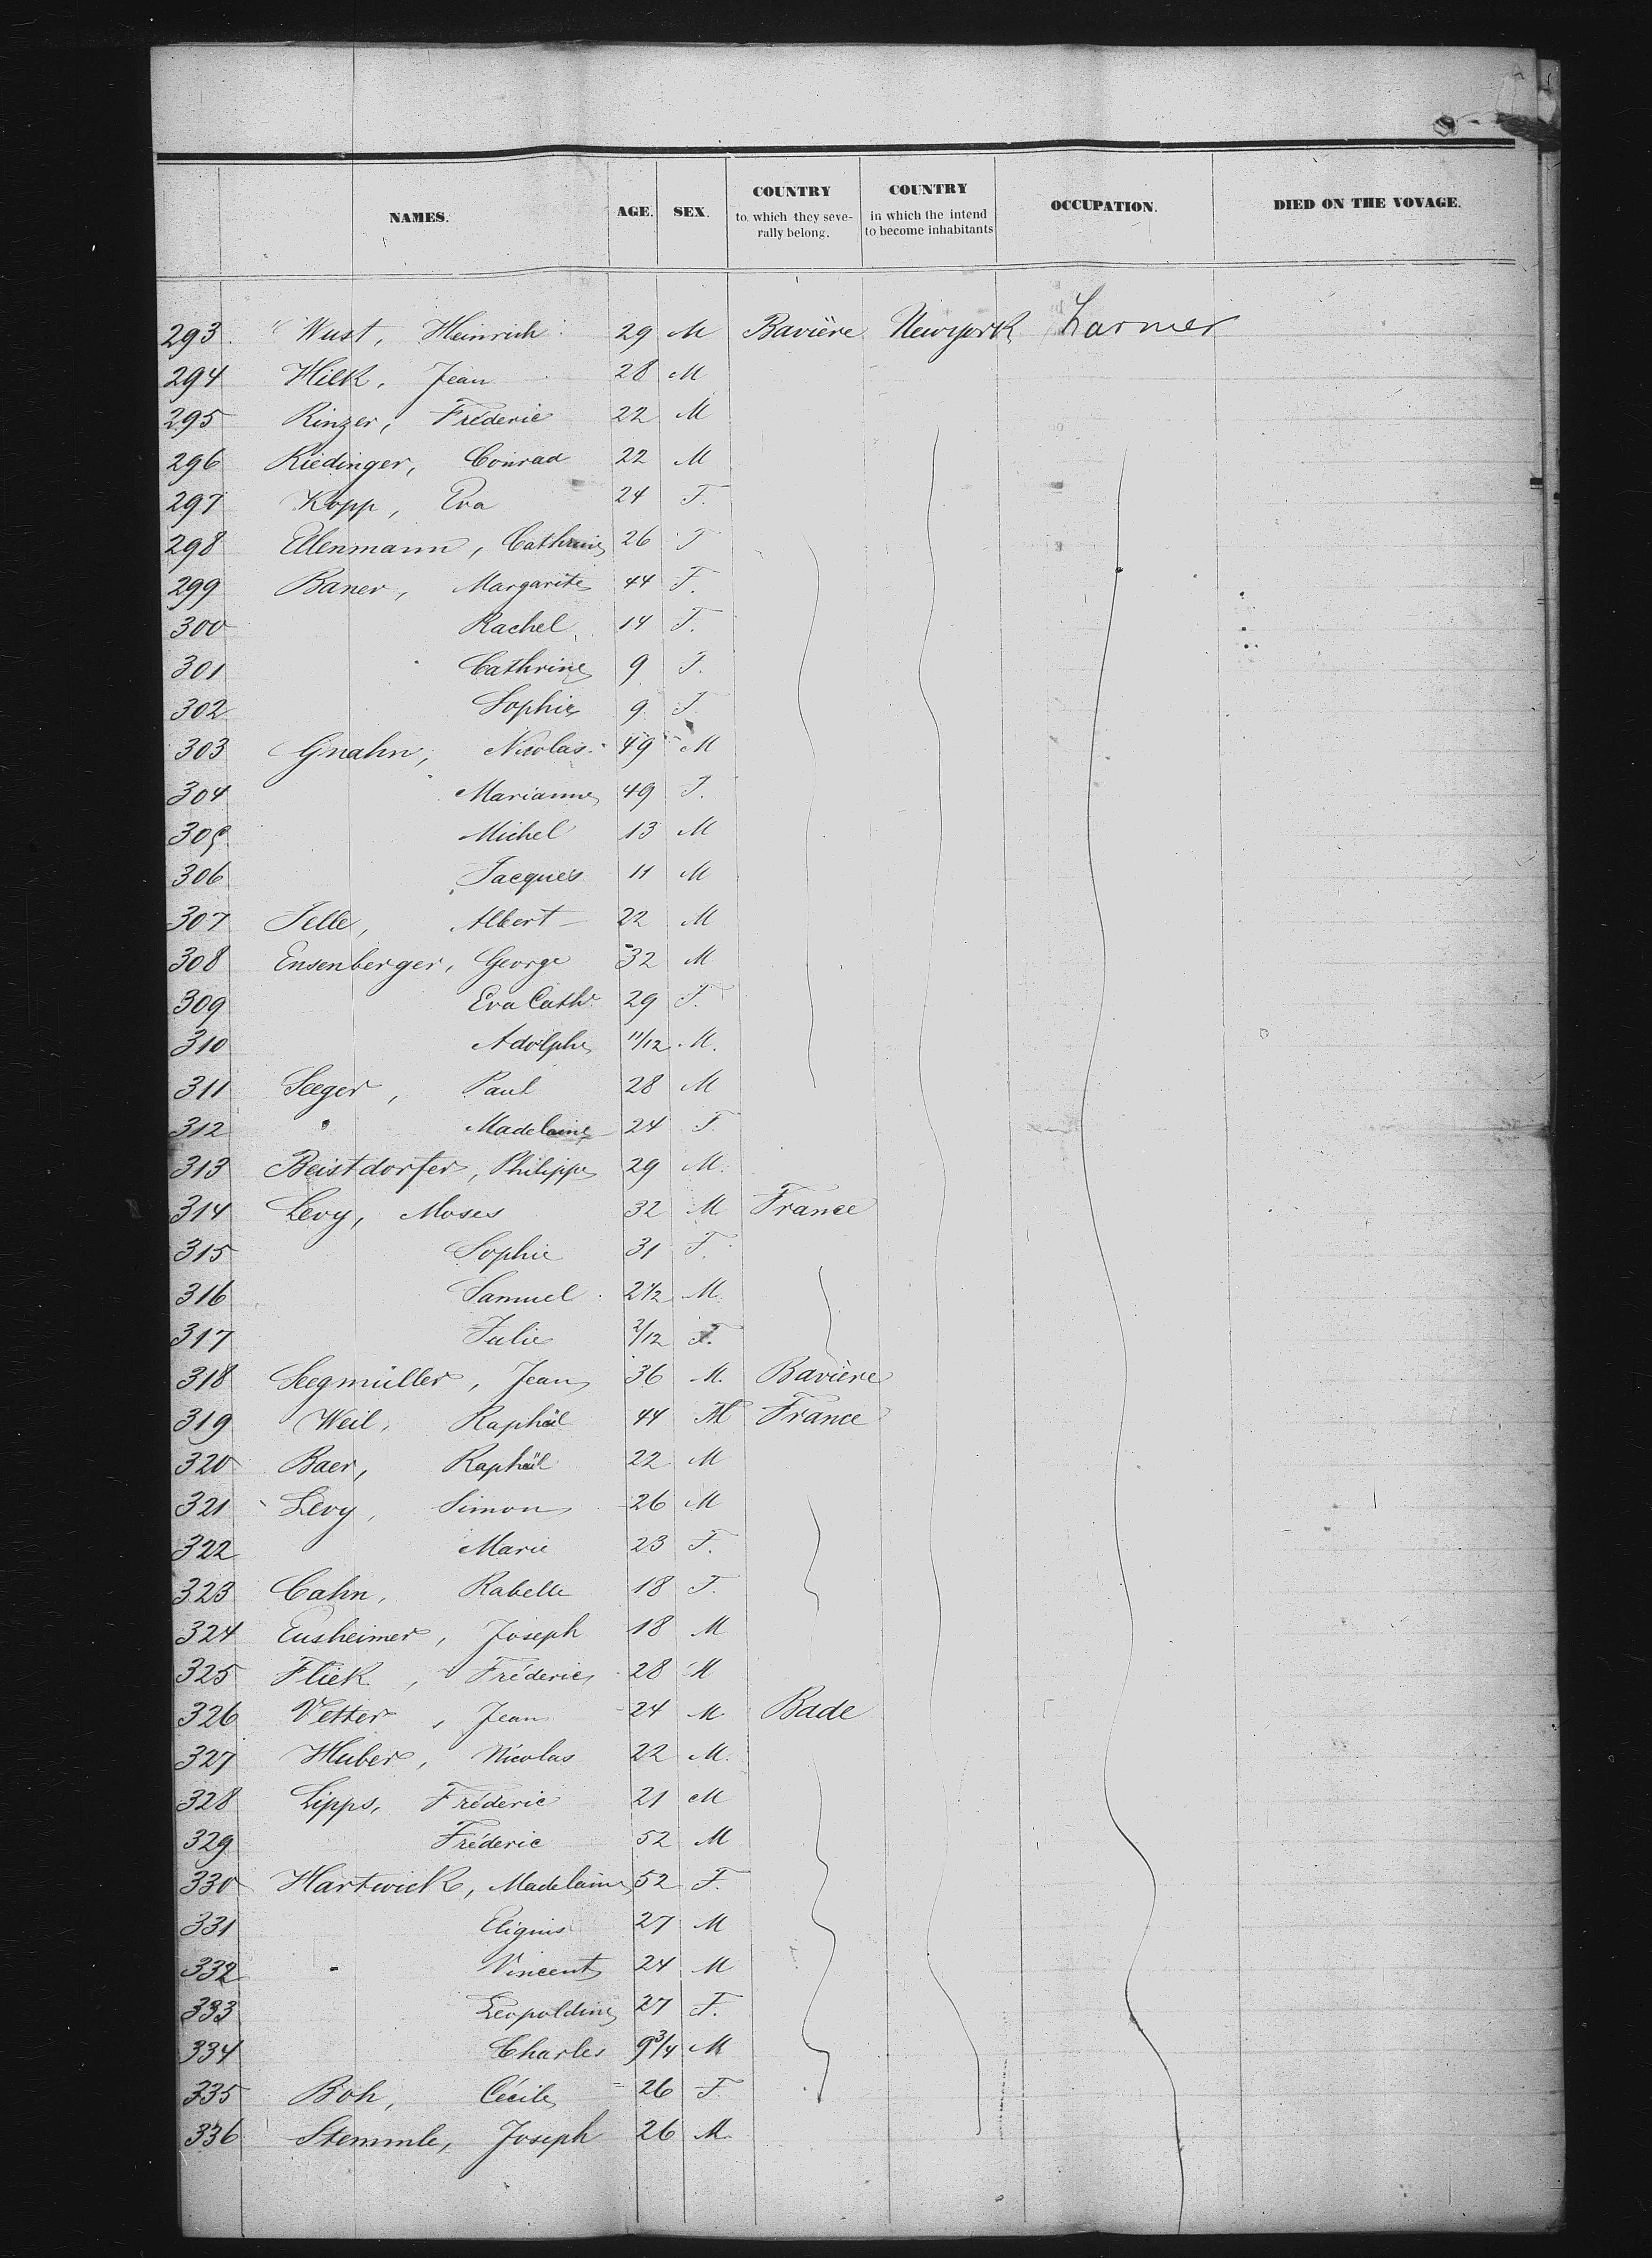 NAMES. AGE. SEX. COUNTRY to, which they severally belong. COUNTRY in which the intend to become inhabitants OCCUPATION. DIED ON THE VOYAGE.
293 Wust, Heinrich 29 M Bavière Newyork Farmer
294 Hilk, Jean 28 M
295 Rinzer, Fréderic 22 M
296 Riedinger, Conrad 22 M
297 Kopp, Eva 24 F.
298 Ellenmann, Cathrine 26 F
299 Baner, Margarite 44 F.
300 Rachel 14 F.
301 Cathrine 9 F.
302 Sophie 9 F.
303 Gnahn, Nicolas 49 M
304 Marianne 49 F.
305 Michel 13 M
306 Jacques 11 M
307 Jelle, Albert 22 M
308 Ensenberger, George 32 M
309 Eva Cath. 29 F.
310 Adolphe 11/12 M.
311 Seeger, Paul 28 M
312 " Madelaine 24 F.
313 Beistdorfer, Philippe 29 M.
314 Levy, Moses 32 M France
315 Sophie 31 F.
316 Samuel 2 1/2 M.
317 Julie 2/12 F.
318 Seegmüller, Jean 36 M. Bavière
319 Weil, Raphäel 44 M France
320 Baer, Raphäel 22 M
321 Levy, Simon 26 M
322 Marie 23 F.
323 Cahn, Rabelle 18 F.
324 Eusheimer, Joseph 18 M
325 Fliek, Fréderic 28 M
326 Vetter, Jean 24 M Bade
327 Huber, Nicolas 22 M.
328 Lipps, Fréderic 21 M
329 Fréderic 52 M
330 Hartwick, Madelaine 52 F.
331 Eligius 27 M
332 " Vincent 24 M
333 Leopoldine 27 F.
334 Charles 9 3/4 M
335 Boh, Cécile 26 F.
336 Stemmle, Joseph 26 M.